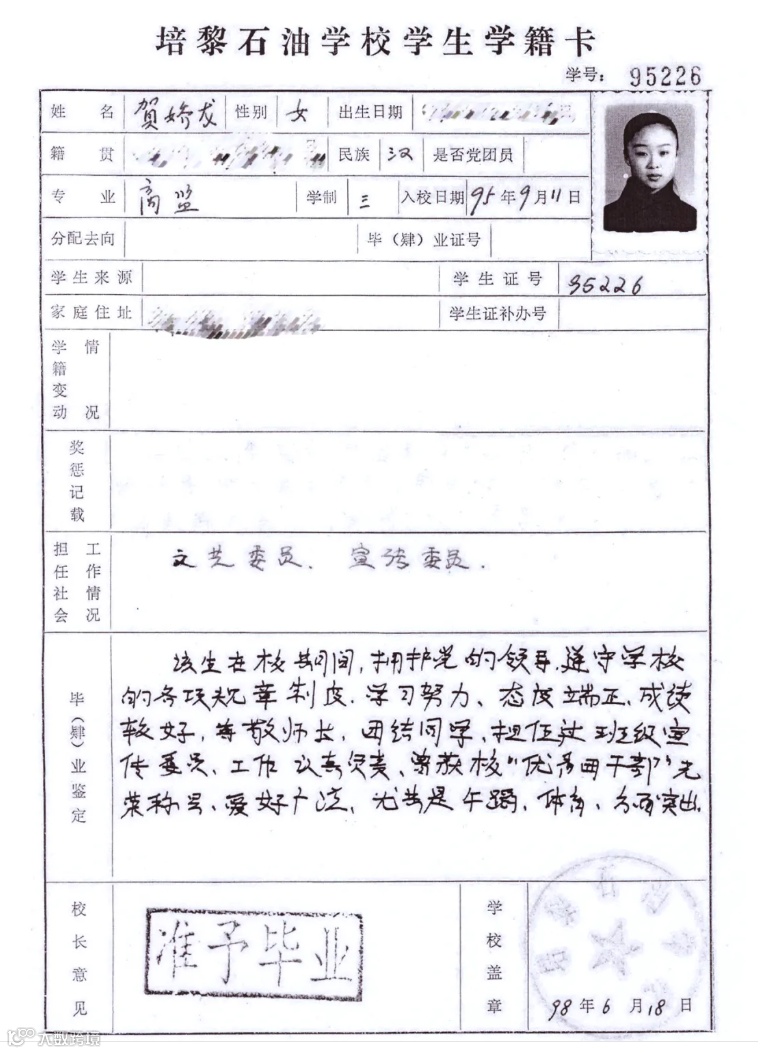 培黎石油学校学生学籍卡
学号: 95226
姓名 賀娇龙 性别 女 出生日期
籍贯 民族 汉 是否党团员
专业 商监 学制 三 入校日期 95年9月11日
分配去向 毕（肄）业证号
学生来源 学生证号 95226
家庭住址 学生证补办号
学籍变动情况
奖惩记载
担任社会工作情况 文艺委员、宣传委员.
毕（肄）业鉴定
该生在校期间,拥护党的领导,遵守学校
的各项规章制度.学习努力、态度端正、成绩
较好,尊敬师长,团结同学、担任过班级宣
传委员、工作认真负责、曾获校"优秀团干部"光
荣称号、爱好广泛,尤其是午蹈、体育、方面突出.
校长意见 准予毕业 学校盖章
98年6月18日
大数跨境